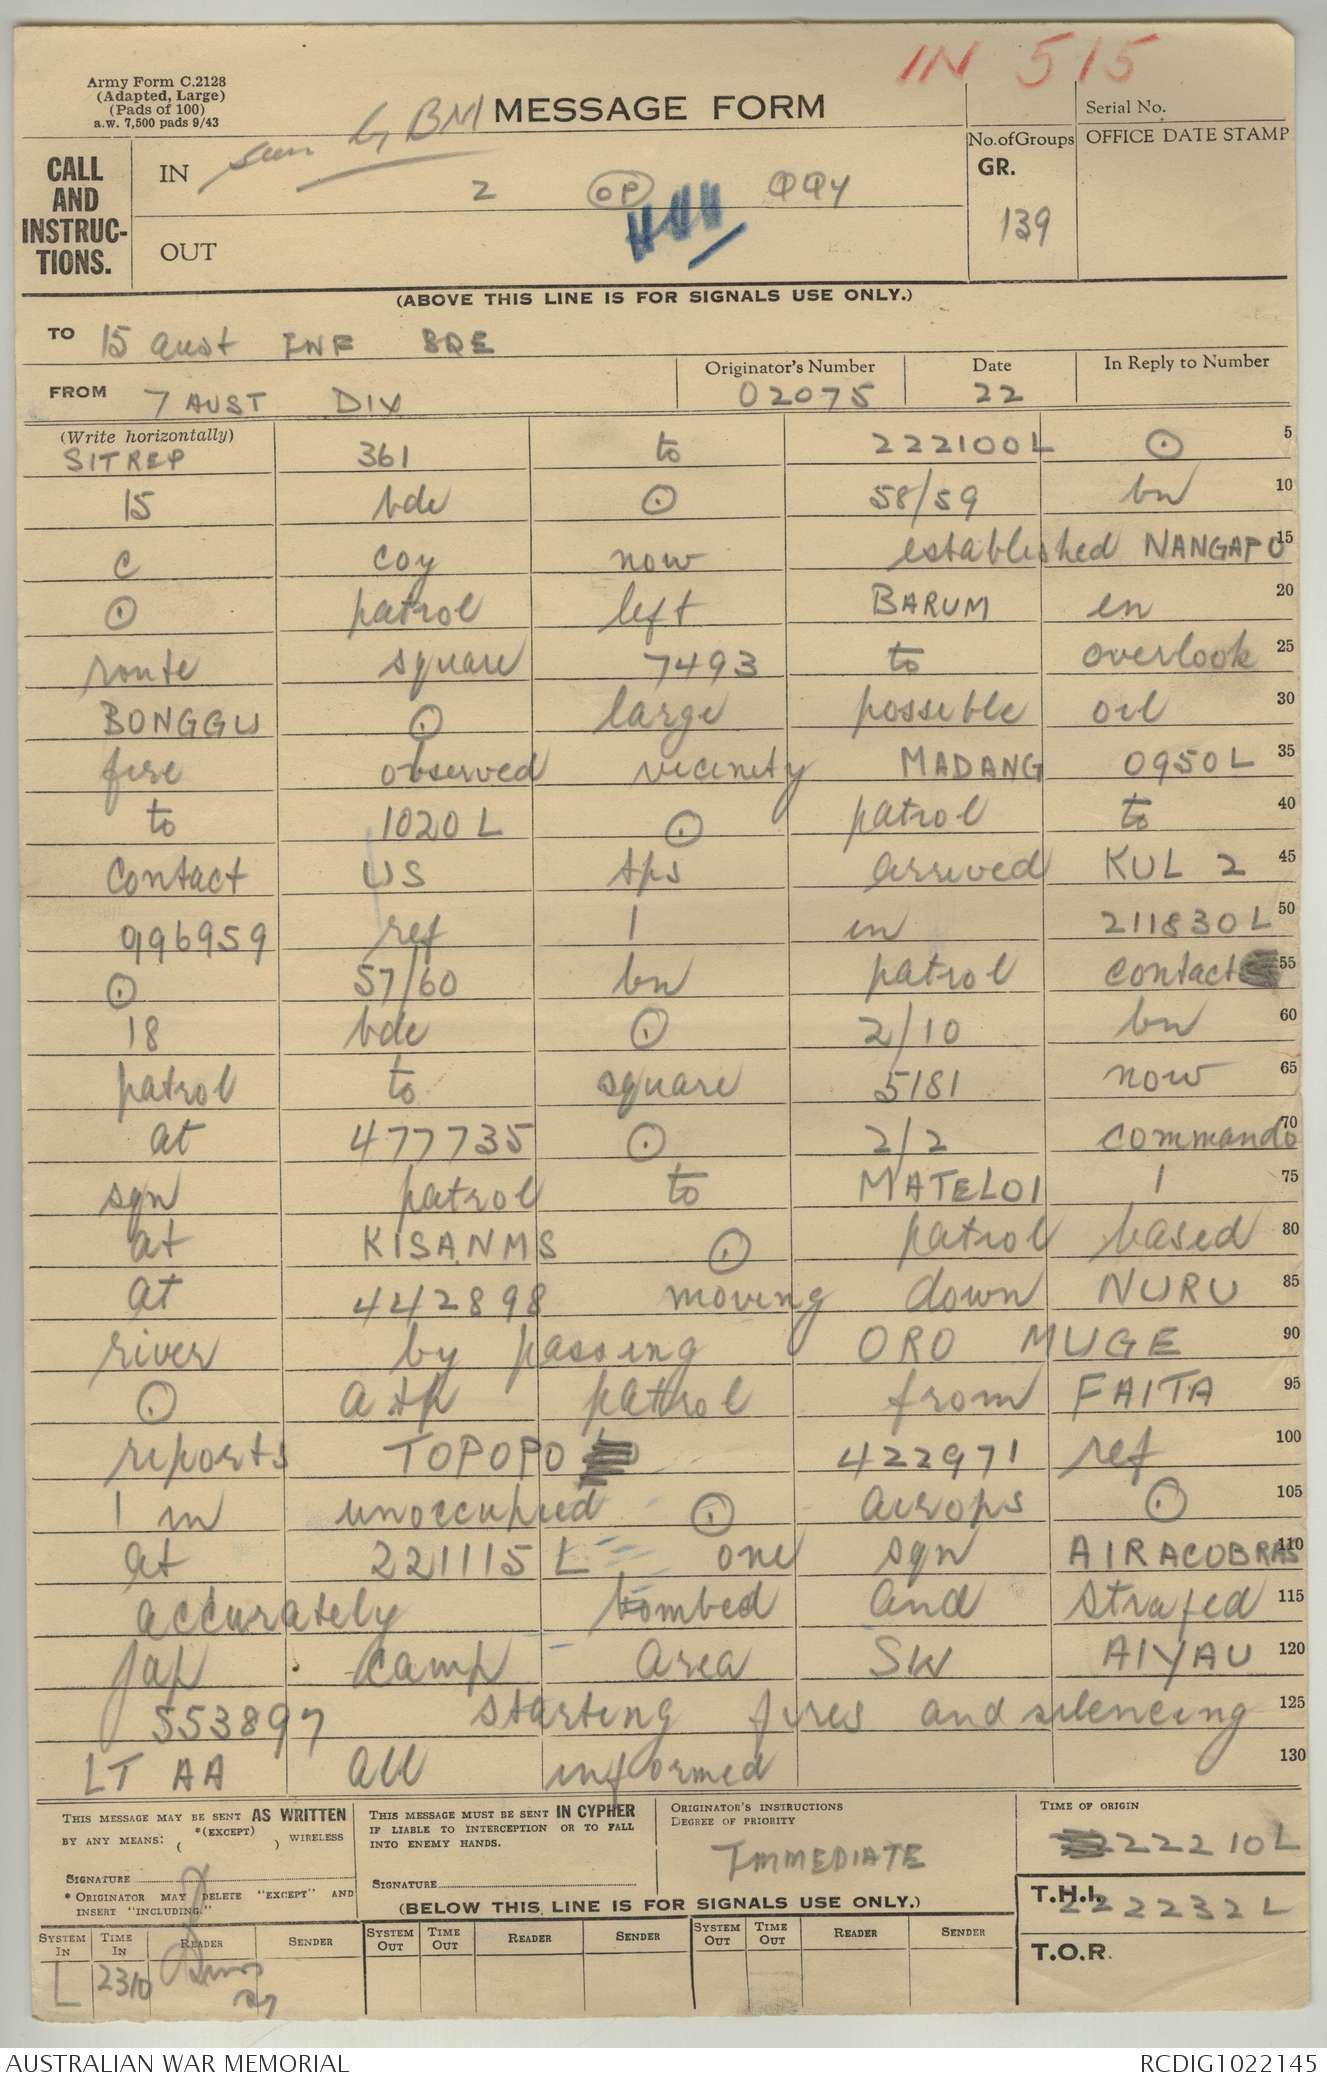 IN 515
Army Form C.2128
(Adapted, Large)
(Pads of 100)
a.w. 7,500 pads 9/43
seen by BM
MESSAGE FORM
Serial No.
CALL AND INSTRUC-TIONS.
IN
2 OP QQY
OUT
No. of Groups
GR.
139
OFFICE DATE STAMP
(ABOVE THIS LINE IS FOR SIGNALS USE ONLY.)
TO 15 aust INF BDE
FROM 7 AUST DIV
Originator's Number
02075
Date
22
In Reply to Number
(Write horizontally)
SITREP 361 to 222100L ⊙ 5
15 bde ⊙ 58/59 bn 10
C coy now established NANGAPO 15
⊙ patrol left BARUM en 20
route square 7493 to overlook 25
BONGGU ⊙ large possible oil 30
fire observed vicinity MADANG 0950L 35
to 1020L ⊙ patrol to 40
contact US tps arrived KUL 2 45
996959 ref 1 in 211830L 50
⊙ 57/60 bn patrol contact 55
18 bde ⊙ 2/10 bn 60
patrol to square 5181 now 65
at 477735 ⊙ 2/2 commando 70
sqn patrol to MATELOI 1 75
at KISANMS ⊙ patrol based 80
at 442898 moving down NURU 85
river by passing ORO MUGE 90
⊙ a tp patrol from FAITA 95
reports TOPOPO 422971 ref 100
1 in unoccupied ⊙ airops ⊙ 105
at 221115L one sqn AIRACOBRAS 110
accurately bombed and strafed 115
Jap camp area SW AIYAU 120
553897 starting fires and silencing 125
LT AA all informed 130
THIS MESSAGE MAY BE SENT AS WRITTEN
BY ANY MEANS: ( *(EXCEPT) ) WIRELESS
SIGNATURE
* ORIGINATOR MAY DELETE "EXCEPT" AND
INSERT "INCLUDING."
THIS MESSAGE MUST BE SENT IN CYPHER
IF LIABLE TO INTERCEPTION OR TO FALL
INTO ENEMY HANDS.
SIGNATURE
ORIGINATOR'S INSTRUCTIONS
DEGREE OF PRIORITY
IMMEDIATE
TIME OF ORIGIN
222210L
(BELOW THIS LINE IS FOR SIGNALS USE ONLY.)
T.H.I. 222232L
T.O.R.
SYSTEM IN TIME IN READER SENDER SYSTEM OUT TIME OUT READER SENDER SYSTEM OUT TIME OUT READER SENDER
L 2310
AUSTRALIAN WAR MEMORIAL
RCDIG1022145